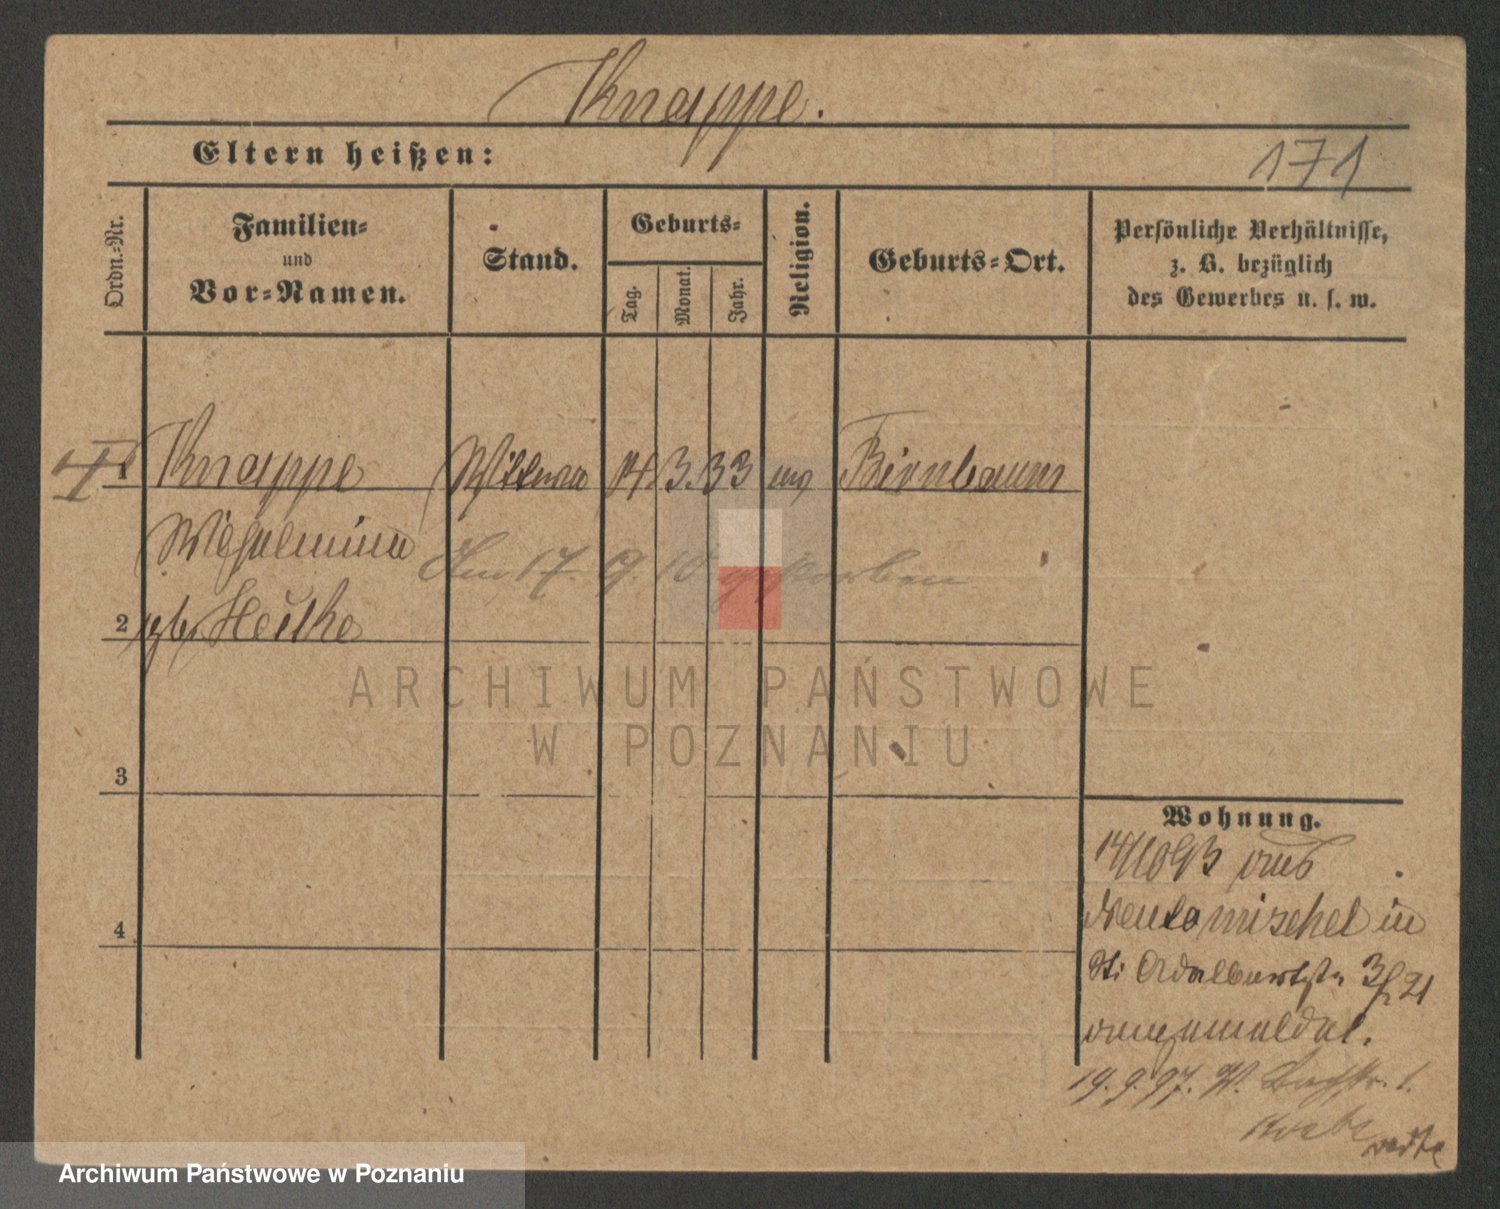 Knappe.
Eltern heißen:
171
Ordn.-Nr.
Familien-
und
Vor-Namen.
Stand.
Geburts-
Tag.
Monat.
Jahr.
Religion.
Geburts-Ort.
Persönliche Verhältnisse,
z. B. bezüglich
des Gewerbes u. s. w.
1 Knappe Wittwe 14. 3. 33 ev Birnbaum
Wilhelmine
Am 17. 9. 10 gestorben
2 geb. Heilke
ARCHIWUM PAŃSTWOWE
W POZNANIU
3
Wohnung.
14/10 93 aus
Neutomischel in
St: Adalbertstr 3 21
4
angemeldet.
19. 9. 97. W. 1.
Archiwum Państwowe w Poznaniu